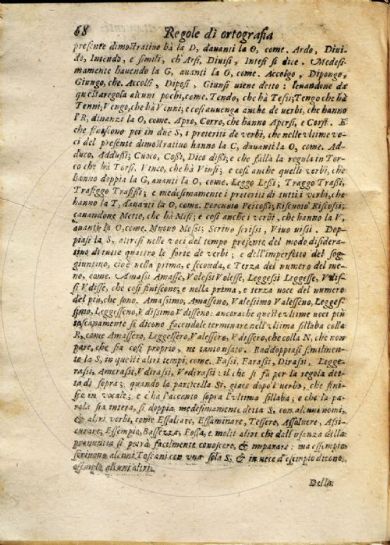 68 Regole di ortografia
presente dimostrativo hà la D, dauanti la O, come. Ardo, Diui-
do, Intendo, e simili, ch Arsi, Diuisi, Intesi si dice. Medesi-
mamente hauendo la G, auanti la O, come. Accolgo, Dipongo,
Giungo, che. Accolsi, Diposi, Giunsi viene detto: leuandone da
questa regola alcuni pochi, come. Tendo, che hà Tesi; Tengo che hà
Tenni, Vengo, che hà Venni; e così auuenga anche de verbi, che hanno
PR, dinanzi la O, come. Apro, Corro, che hanno Apersi, e Corsi. E
che finiscono per in due S, i preteriti de verbi, che nelle vltime vo-
ci del presente dimostratiuo hanno la C, dauanti la O, come. Ad-
duco, Addussi; Cuoco, Cossi, Dico dissi; e che falla la regola in Tor-
co che hà Torsi. Vinco, che hà Vinsi; e così anche quelli verbi, che
hanno doppia la G, auanti la O, come. Leggo Lessi, Traggo Trassi,
Trafiggo Trafissi; e medesimamente i preteriti di tutti i verbi, che
hanno la T, dauanti la O, come. Percuoto Percossi, Riscuoto Riscossi;
cauandone Metto, che hà Misi; e così anche i verbi, che hanno la V,
auanti la O, come, Muouo Mossi; Scriuo scrissi, Viuo vissi. Dop-
piasi la S, altresì nelle voci del tempo presente del modo disidera-
tiuo di tutte quattro le sorte de verbi; e dell'imperfetto del sog-
giuntiuo, cioè nella prima, e seconda, e Terza del numero del me-
no, come. Amassi Amasse, Volessi Volesse, Leggessi Leggesse, Vdis-
si Vdisse, che così finiscono; e nella prima, e terza voce del numero
del più, che sono. Amassimo, Amasseno, Valessimo Valesseno, Legges-
simo, Leggesseno, Vdissimo Vdisseno: ancora che queste vltime voci più
toscanamente si dicono facendole terminare nell'vltima sillaba colla
R, come Amassero, Leggessero, Valessero, Vdissero, che colla N, che non
pare, che sia così proprio, ne tanto vsato. Raddoppiasi similmen-
te la S, in questi altri tempi, come. Fassi, Farassi, Dirassi, Legge-
rassi, Amerassi, Vdirassi, Vedrassi: il che si fà per la regola det-
ta di sopra; quando la particella Si, giace dopo 'l verbo, che fini-
sce in vocale; e c'ha l'accento sopra l'vltima sillaba; e che la pa-
rola sia intera, si doppia medesimamente detta S, con alcuni nomi,
& altri verbi, come Essaltare, Essaminare, Tessero, Assoluere, Assi-
curare, Essempio, Bassezza, Fossa, e molti altri che dall'vsanza della
pronuntia si potrà facilmente conoscere, & imparare: ma essempio
scriuono alcuni Toscani con vna sola S, & in vece d'esempio dicono,
asempio alcuni altri.
Della